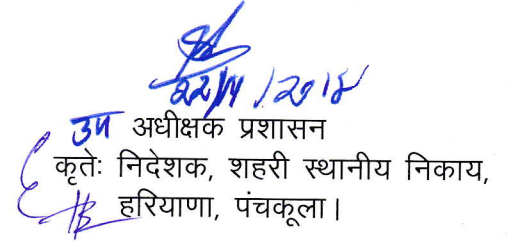 उप अधीक्षक प्रशासन
कृतेः निदेशक, शहरी स्थानीय निकाय,
हरियाणा, पंचकूला।